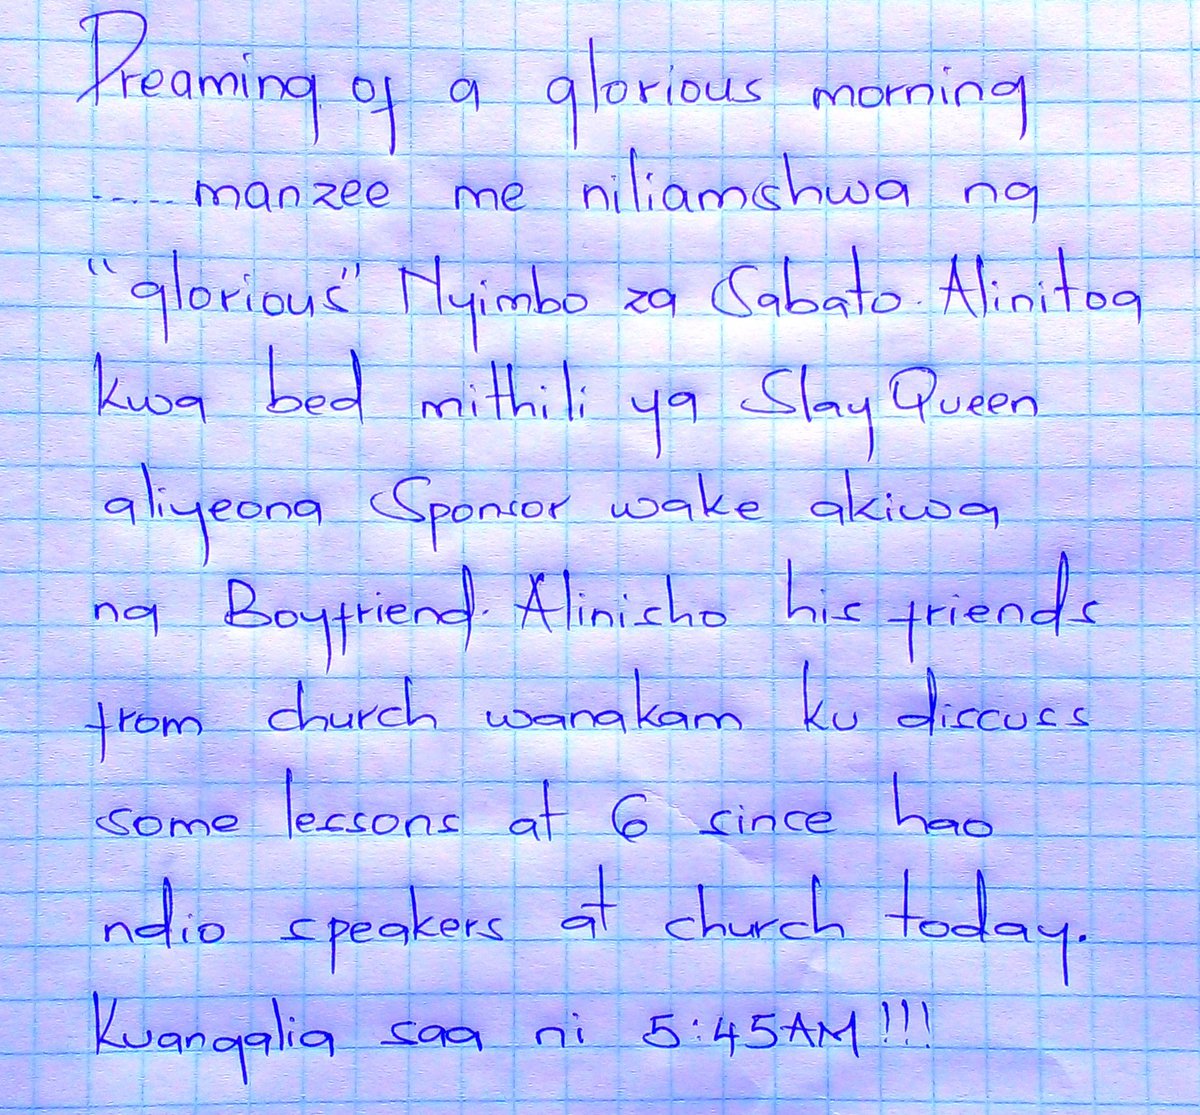 Dreaming of a glorious morning
..... manzee me niliamshwa na
"glorious" Nyimbo za Sabato. Alinitoa
kwa bed mithili ya Slay Queen
aliyeona Sponsor wake akiwa
na Boyfriend. Alinisho his friends
from church wanakam ku discuss
some lessons at 6 since hao
ndio speakers at church today.
Kuangalia saa ni 5:45AM!!!